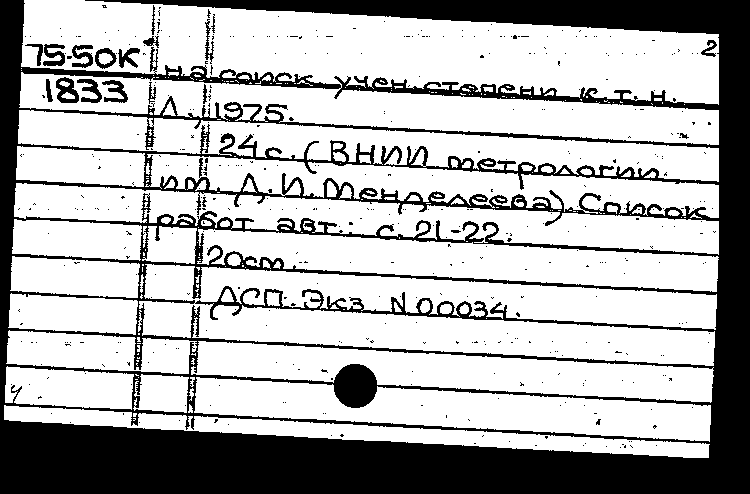 2
75-50К
1833
на соиск. учен. степени к. т. н.
Л., 1975.
24 с. (ВНИИ метрологии
им. Д. И. Менделеева). Список
работ авт.: с. 21-22.
20 см.
ДСП. Экз. N 00034.
ч